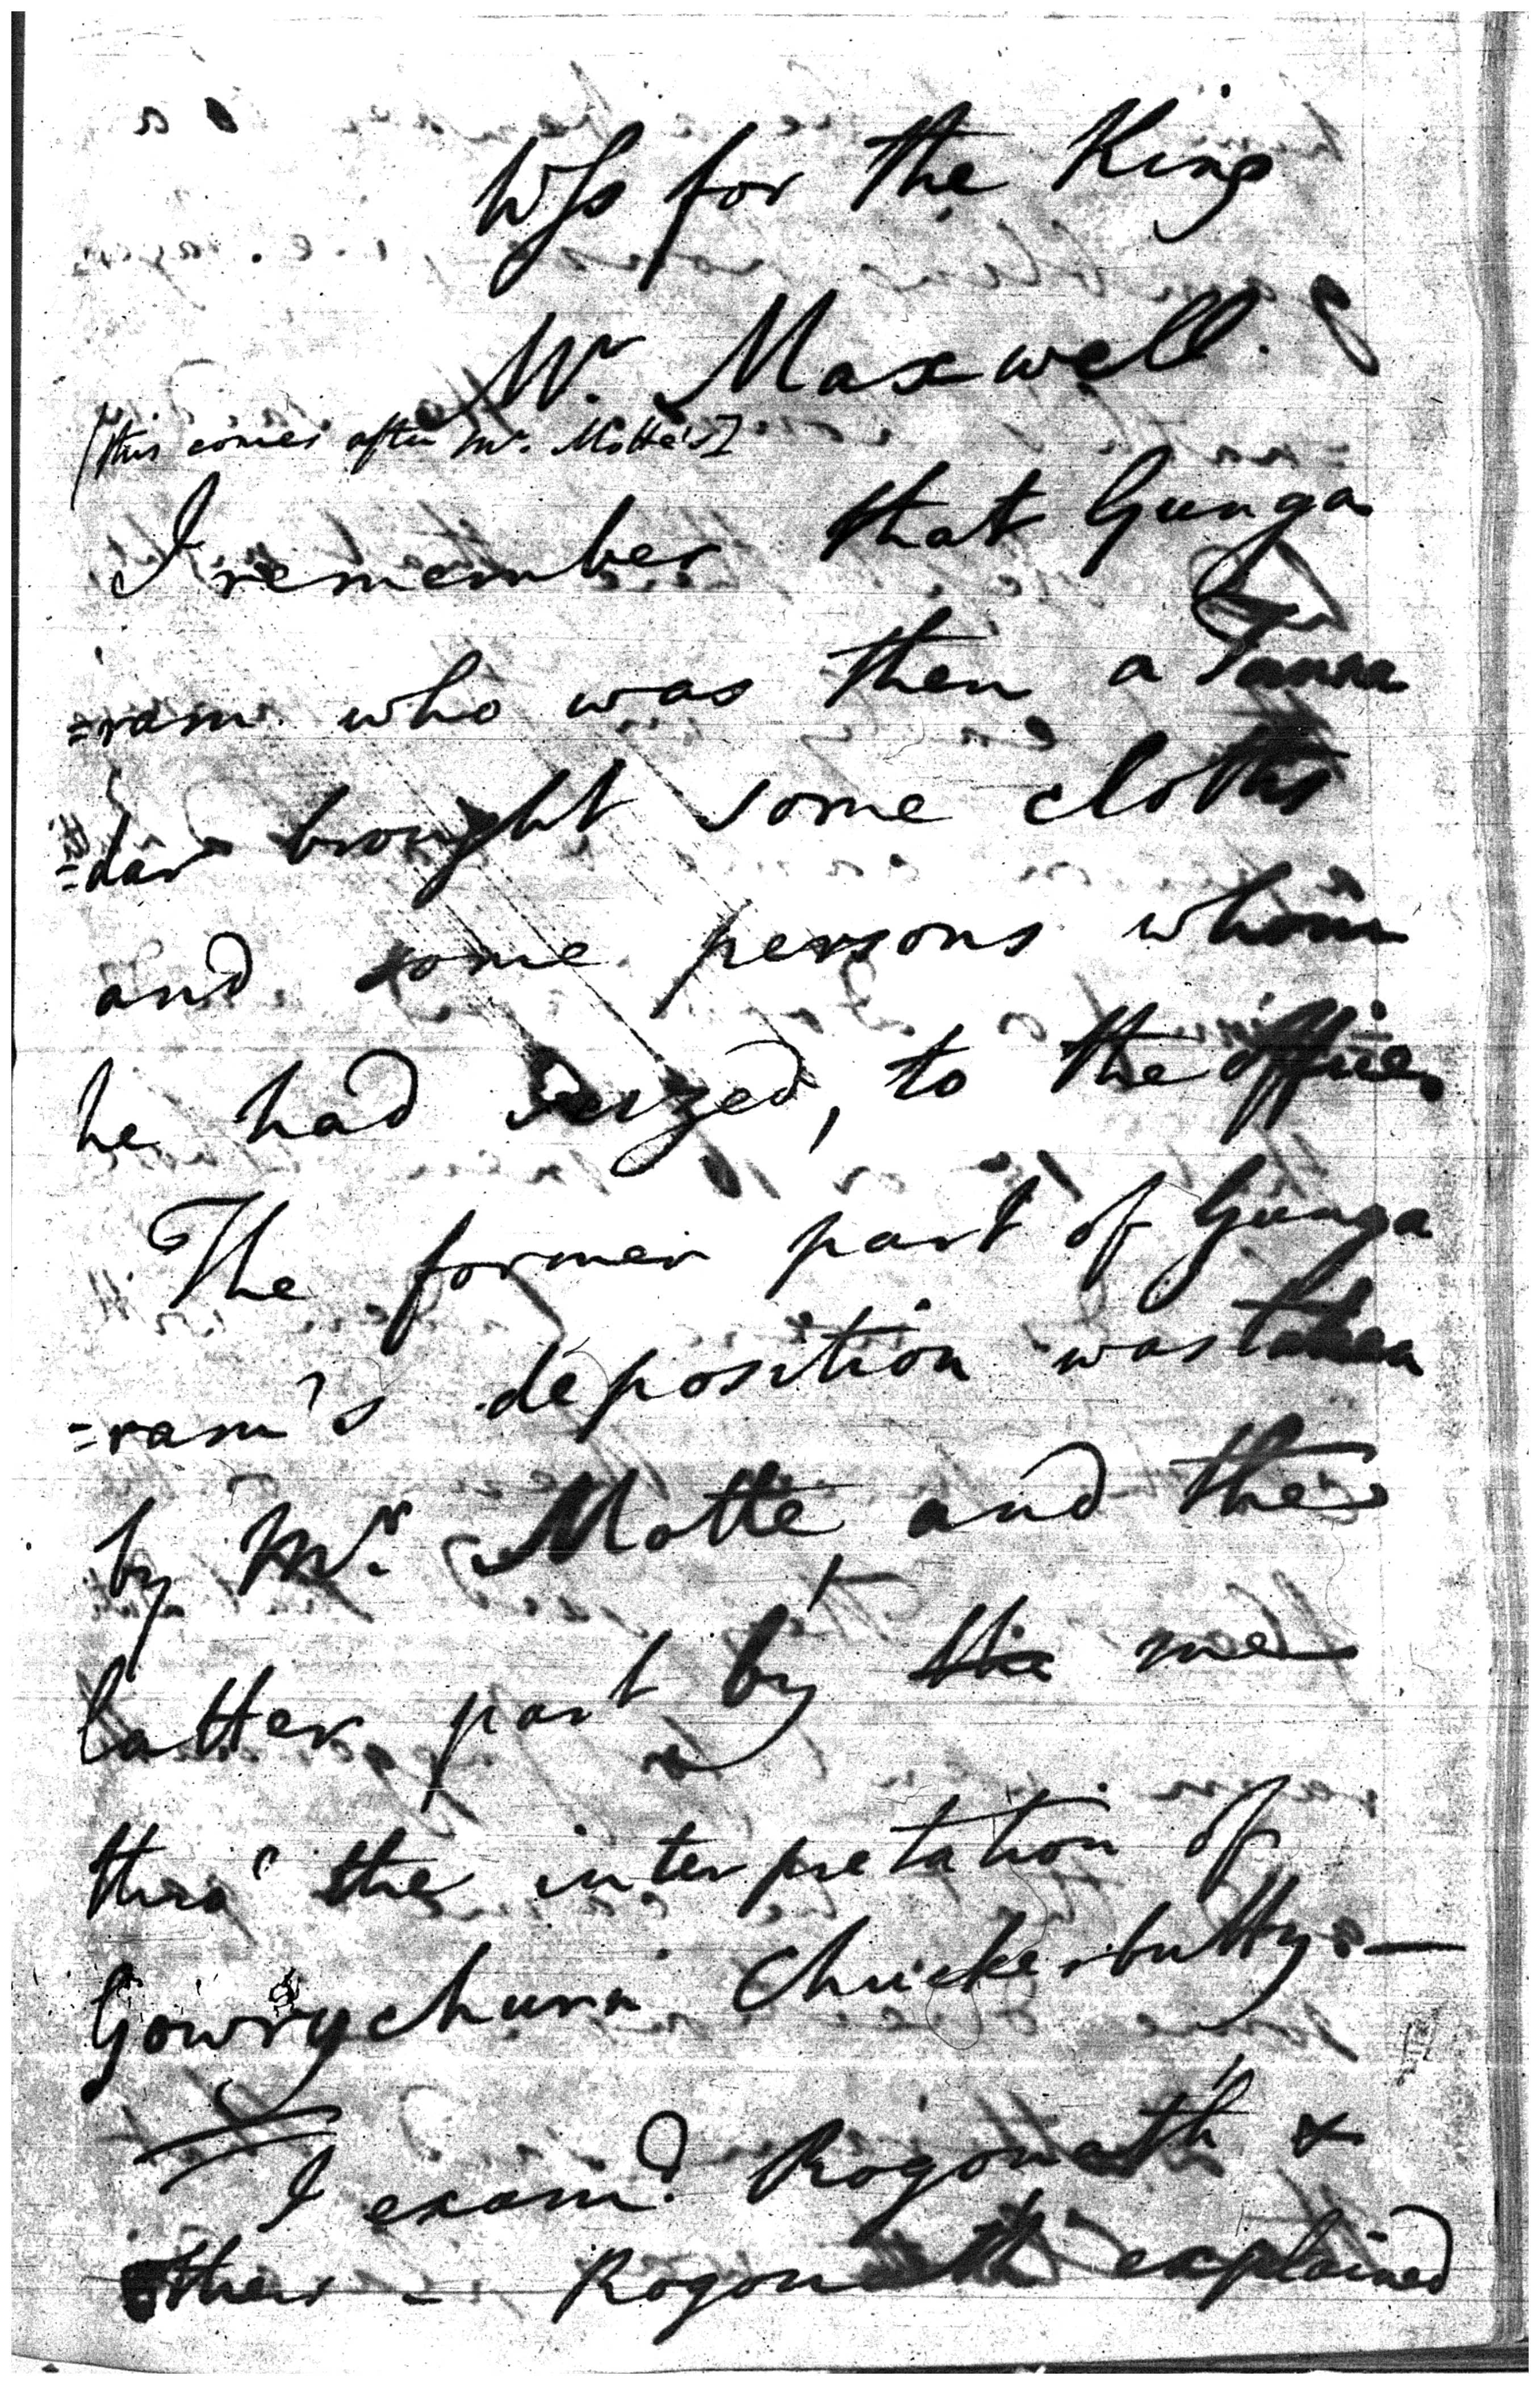 Wss for the King
Mr. Maxwell.
[This comes after Mr. Motte's]
I remember that Gunga
=ram who was then a Tanna
=dar brought some cloths
and some persons whom
he had seized, to the office.
The former part of Gunga
=ram's deposition was taken
by Mr. Motte, and the
latter part by the me
thro' the interpretation of
Gowrychurn Chuckerbutty. —
I examd. Rogonath &
others - Rogonath explained